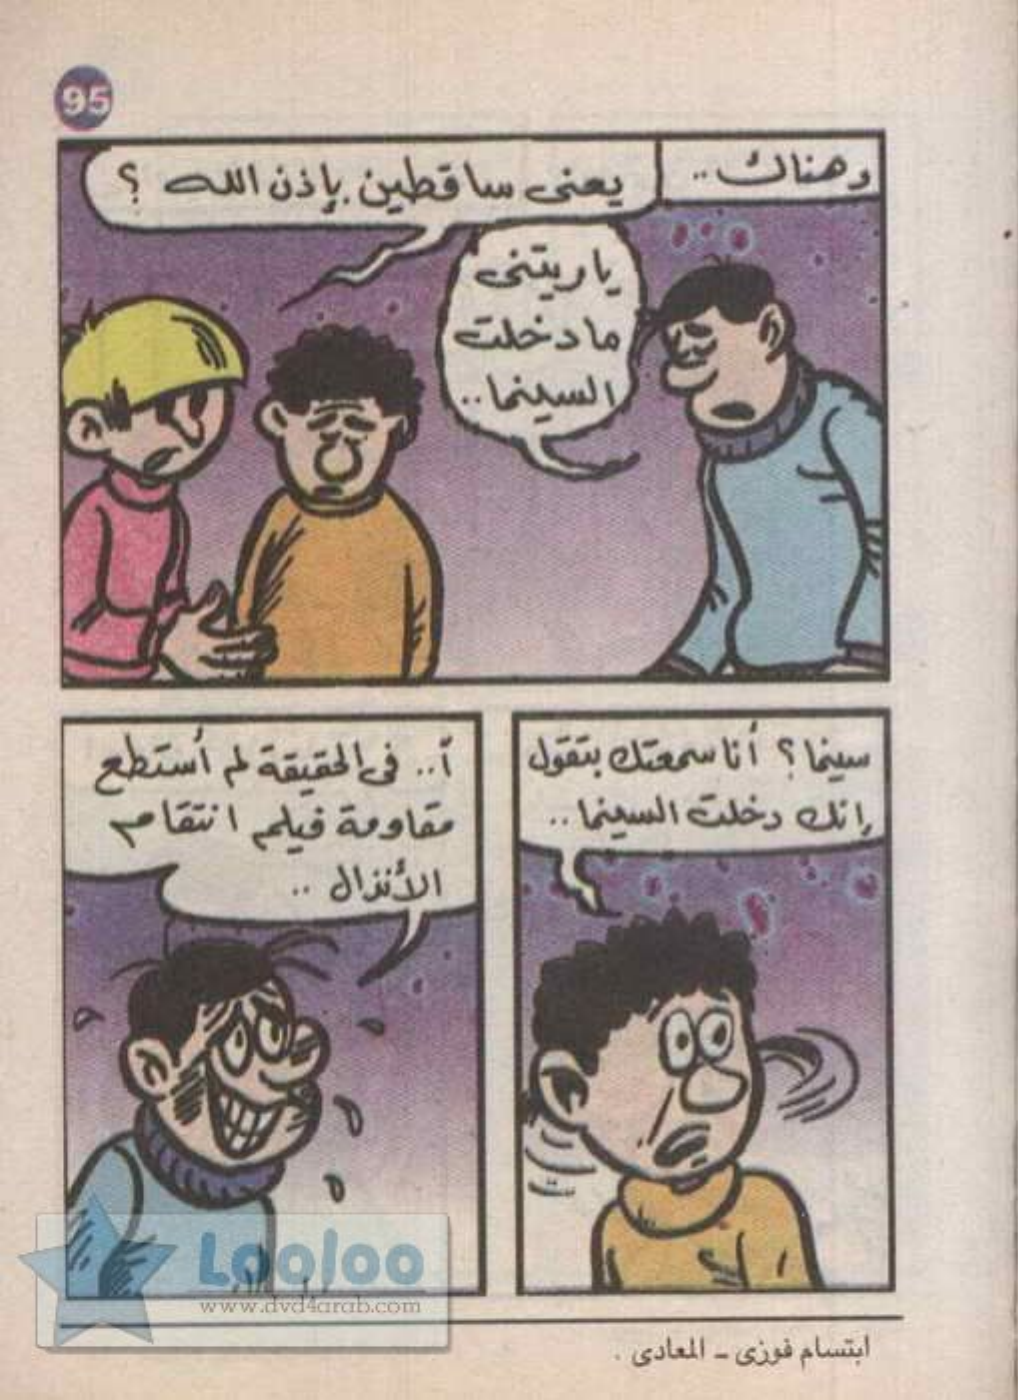 95
وهناك..
يعنى ساقطين بإذن الله ؟
ياريتنى
مادخلت
السينما..
سينما ؟ أنا سمعتك بتقول
إنك دخلت السينما..
آ.. فى الحقيقة لم أستطع
مقاومة فيلم انتقام
الأنذال ..
Looloo
www.dvd4arab.com
ابتسام فوزى - المعادى .